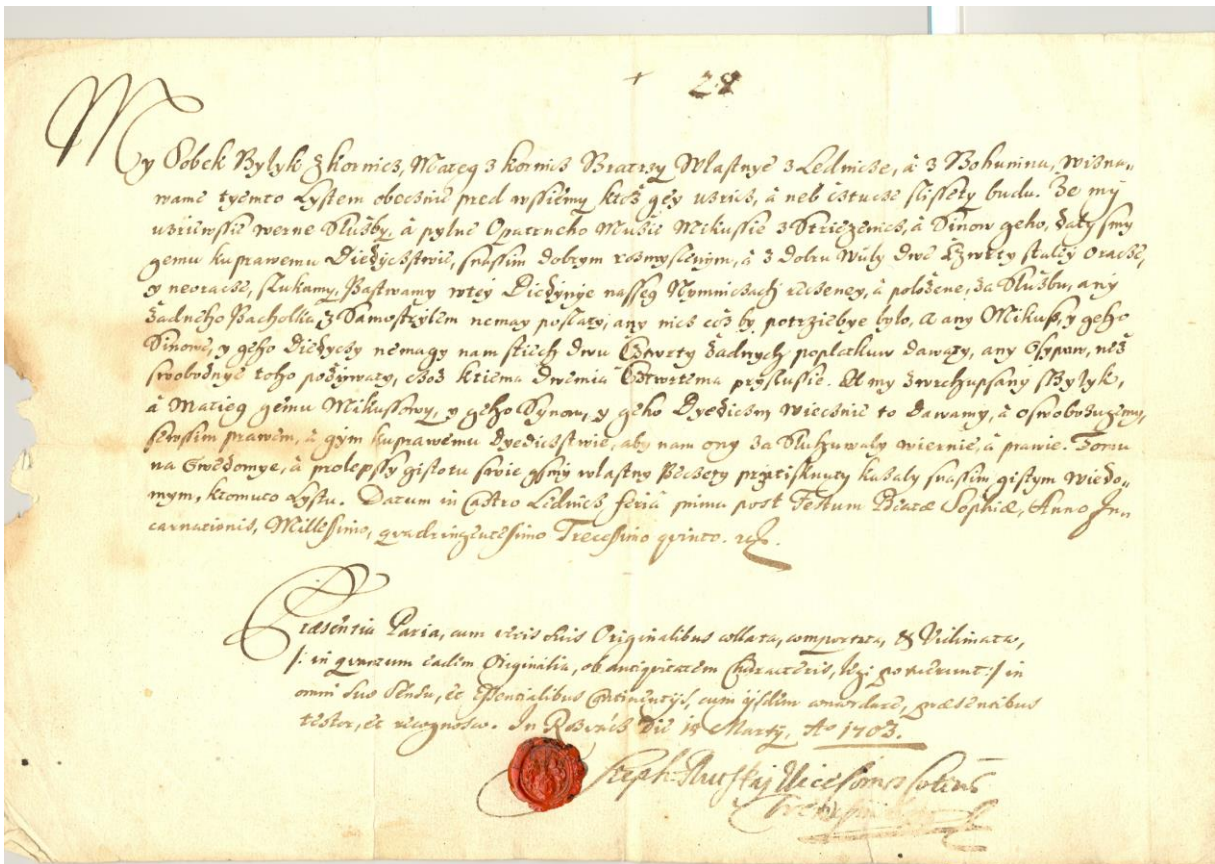 28
My Sobek Bylyk z Kornicz, Mateg z Kornicz Bratrzy Wlastnye z Lednicze, à z Bohunina, wizna„
wame tyemto Lystem obecznie pred wssiemy ktoz gey uzrich, à neb cstucze slissety budu. Ze my
uzriewssie werne Sluzby, à pylne Opatrneho Muzie Mikussie z Striezenicz, à Sinow geho, daly smy
gemu kuprawemu Diedyczstwie, snassim dobrym rozmyslenym, à z dobru wuly dwe Cztwrty staley oracze,
y neoracze, slukamy, Pastwamy wtey Diedynye nasseg Nymniczach rzeczeney, à polozene, za Sluzbu, any
zadneho Pacholka z Samostrylem nemay poslaty, any nicz coz by potrziebye bylo, A any Mikuss, y geho
Sinowe, y geho Diedyczy nemagy nam stiech dwu Cztwrty zadnych poplatkuw dawaty, any Osypow, nez
swobodnye toho pozywaty, czoz ktiema dwemia Cztwrtema pryslussie. A my zwrchupsany Bylyk,
à Matieg gemu Mikussowy, y geho Synow, y geho Dyediczom wiecznie to dawamy, à oswobozugemy,
sewssim prawem, à gym kuprawemu dyediczstwie, aby nam ony za Sluhuwaly wiernie, à prawie. Tomu
na Swedomye, à prolepssy gistotu swie gsmy wlastny Peczety prytisknuty kazaly snassim gistym wiedo„
mym, ktomuto Lystu. Datum in Castro Lednicz feria prima post Festum Beatæ Sophiæ, Anno In„
carnationis, Millesimo, quadringentesimo Trecessimo quinto.
Præsentia Paria, cum veris suis Originalibus collata, comportata, & Vidimata,
/: in quantum eadem Originalia, ob antiquitatem Characteris, legi potuerunt :/ in
omni suo Sensu, et Essentialibus Continentijs, cum ijsdem concordare, præsentibus
testor, et recognosco. In Die 15 Martij, Ao 1703.
Steph: